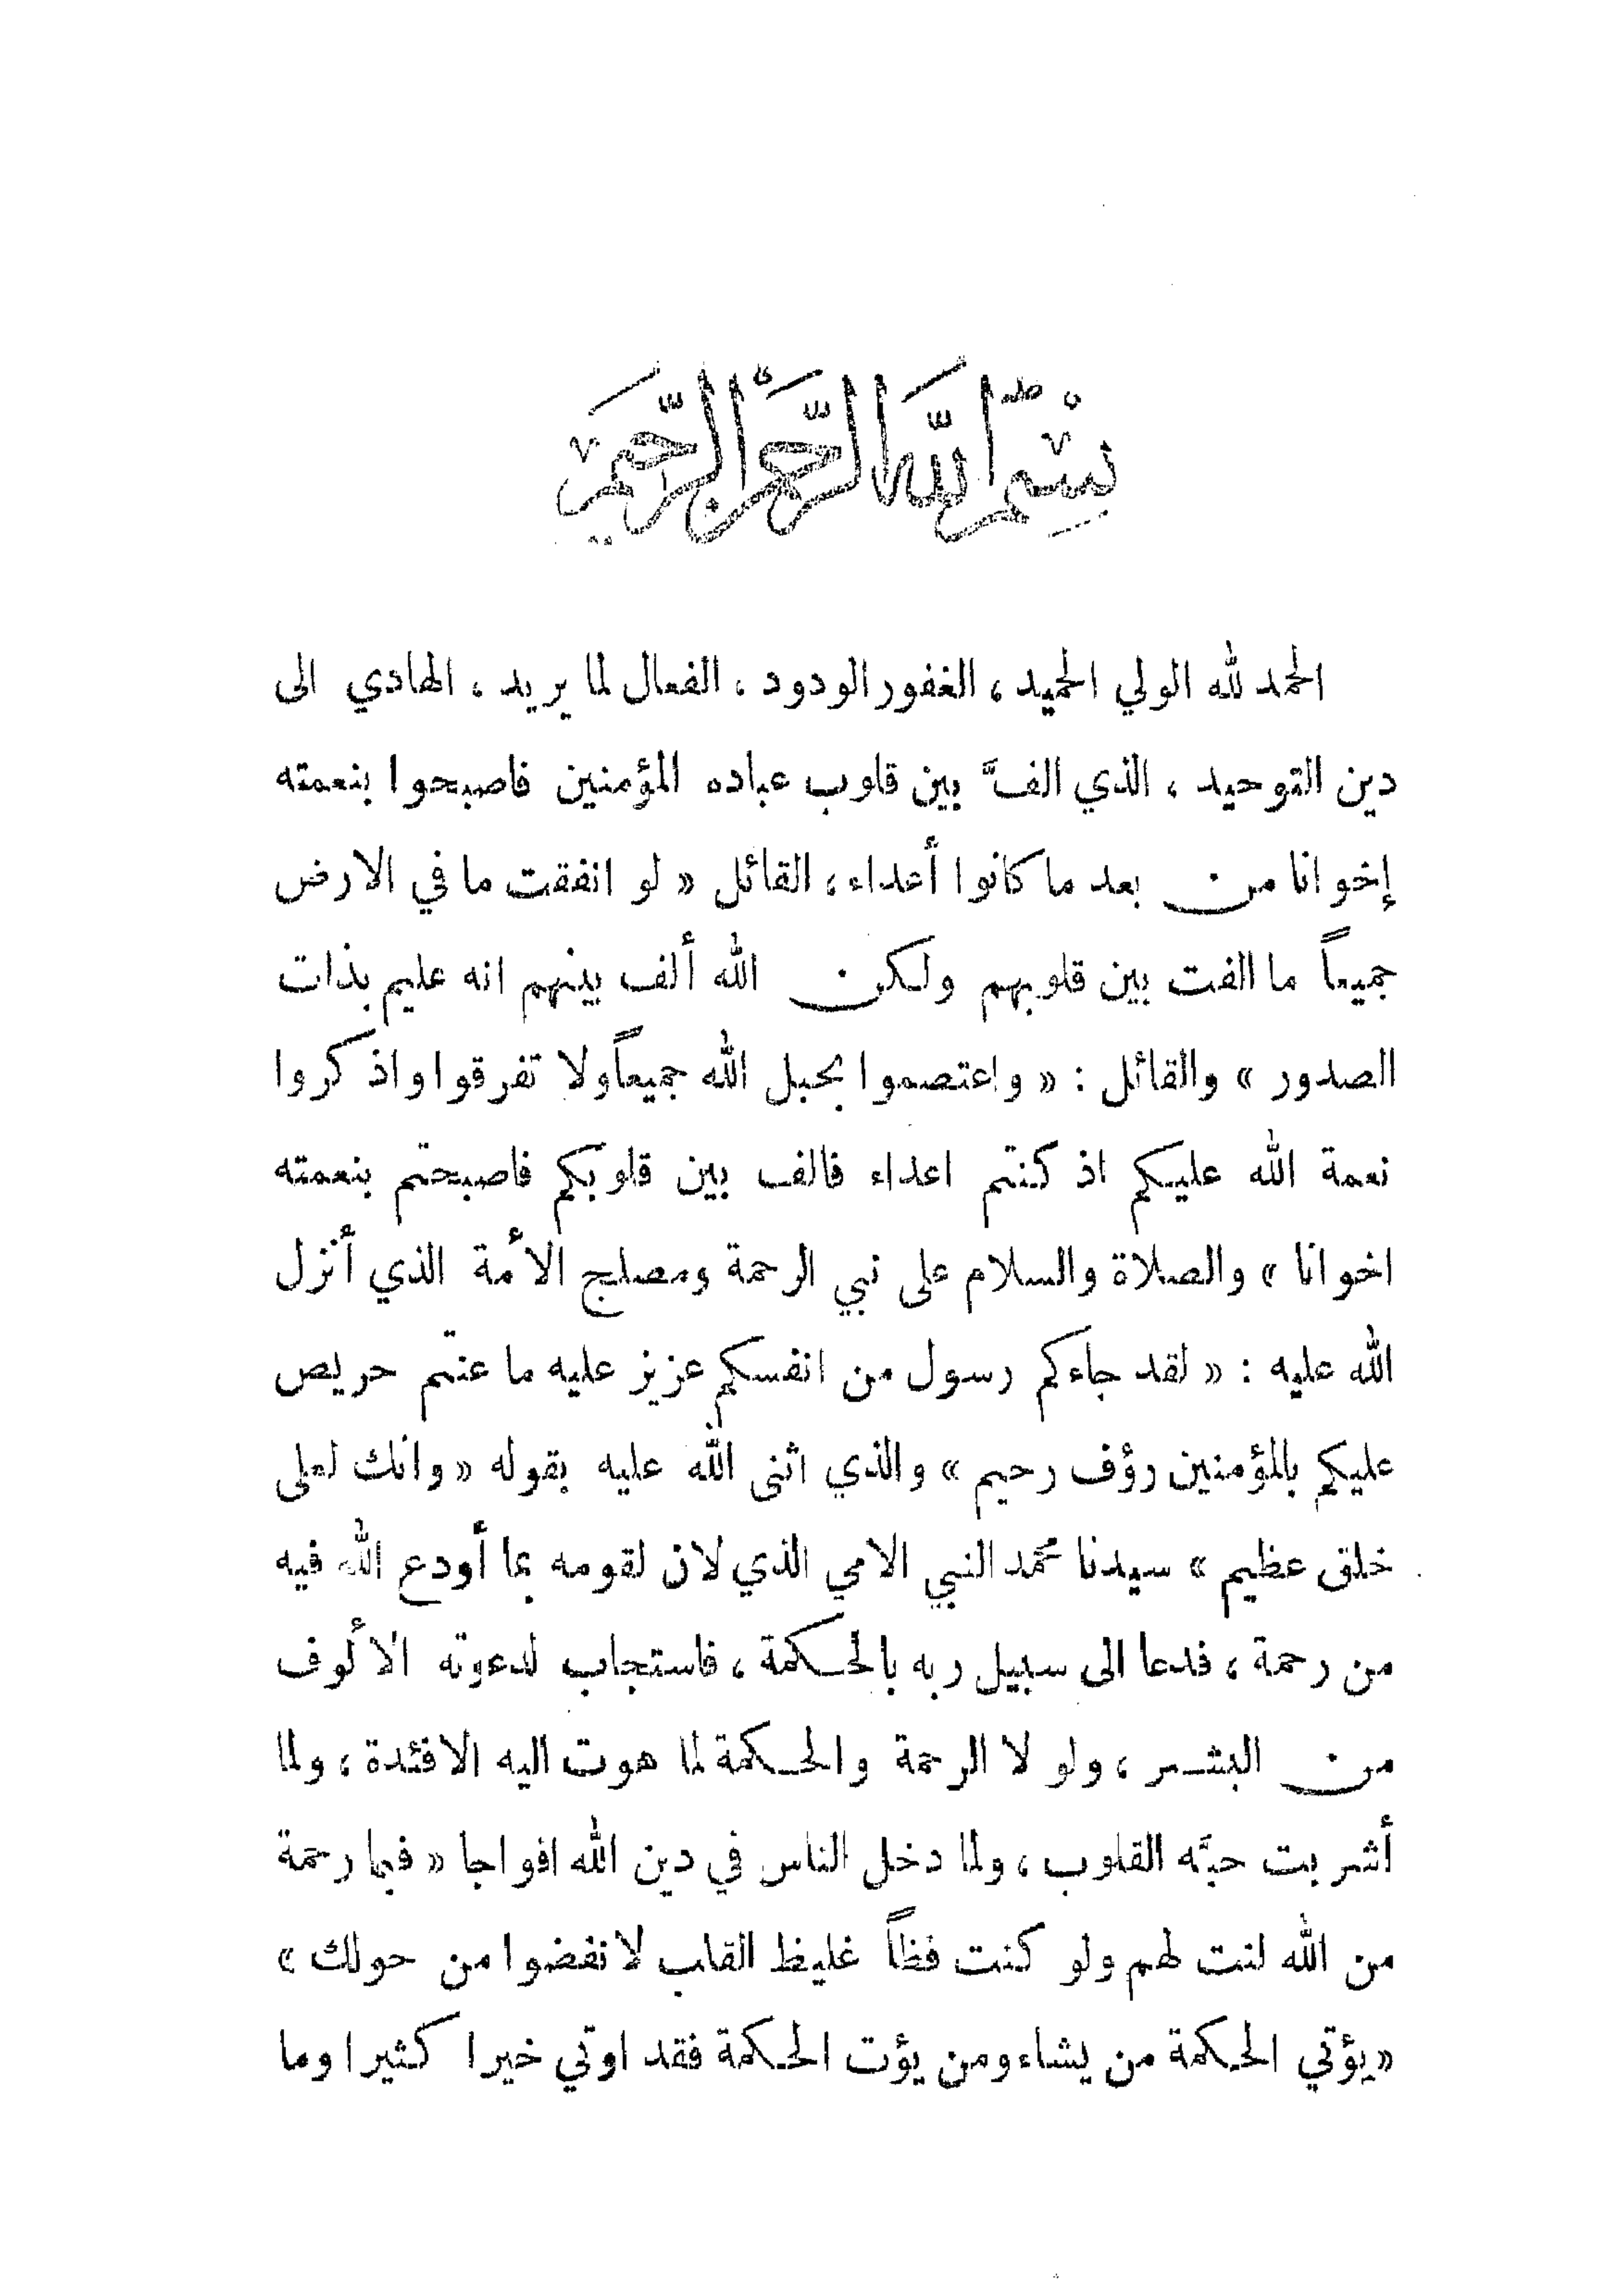 بسم الله الرحمن الرحيم
الحمد لله الولي الحميد ، الغفور الودود ، الفعال لما يريد ، الهادي الى
دين التوحيد ، الذي الفَّ بين قلوب عباده المؤمنين فاصبحوا بنعمته
إخوانا من بعد ما كانوا أعداء ، القائل « لو انفقت ما في الارض
جميعاً ما الفت بين قلوبهم ولكن الله ألف بينهم انه عليم بذات
الصدور » والقائل : « واعتصموا بحبل الله جميعاً ولا تفرقوا واذكروا
نعمة الله عليكم اذ كنتم اعداء فالف بين قلوبكم فاصبحتم بنعمته
اخوانا » والصلاة والسلام على نبي الرحمة ومصلح الأمة الذي أنزل
الله عليه : « لقد جاءكم رسول من انفسكم عزيز عليه ما عنتم حريص
عليكم بالمؤمنين رؤف رحيم » والذي اثنى الله عليه بقوله « وانك لعلى
خلق عظيم » سيدنا محمد النبي الامي الذي لان لقومه بما أودع الله فيه
من رحمة ، فدعا الى سبيل ربه بالحكمة ، فاستجاب لدعوته الألوف
من البشر ، ولو لا الرحمة والحكمة لما هوت اليه الافئدة ، ولما
أشربت حبَّه القلوب ، ولما دخل الناس في دين الله افواجا « فبما رحمة
من الله لنت لهم ولو كنت فظاً غليظ القلب لانفضوا من حولك »
« يؤتي الحكمة من يشاء ومن يؤت الحكمة فقد اوتي خيرا كثيرا وما